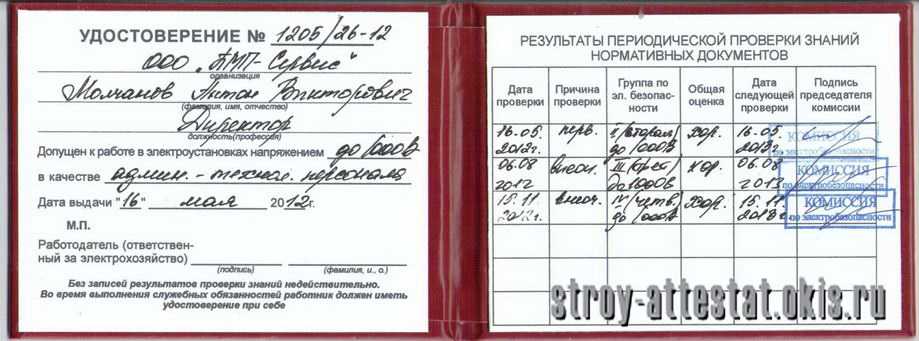 УДОСТОВЕРЕНИЕ № 1205/26-12
ООО "ТМП-Сервис"
организация
Молчанов Антон Викторович
(фамилия, имя, отчество)
Директор
должность(профессия)
Допущен к работе в электроустановках напряжением до 1000В
в качестве админ.-технол. персонала
Дата выдачи "16" мая 2012г.
М.П.
Работодатель (ответствен-
ный за электрохозяйство)
(подпись) (фамилия, и., о.)
Без записей результатов проверки знаний недействительно.
Во время выполнения служебных обязанностей работник должен иметь
удостоверение при себе
РЕЗУЛЬТАТЫ ПЕРИОДИЧЕСКОЙ ПРОВЕРКИ ЗНАНИЙ
НОРМАТИВНЫХ ДОКУМЕНТОВ
Дата проверки Причина проверки Группа по эл. безопас-ности Общая оценка Дата следующей проверки Подпись председателя комиссии
16.05. перв. II/вторая/ хор. 16.05
2012г. до 1000В 2013г.
06.08 внеоч. III/трет/ хор. 06.08
2012 до 1000В 2013
15.11 внеоч. IV/четв./ хор. 15.11
2012г. до 1000В 2013г.
КОМИССИЯ
КОМИССИЯ
по электробезопасности
КОМИССИЯ
по электробезопасности
stroy-attestat.okis.ru